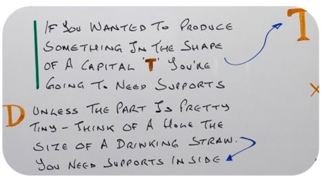 If You Wanted To Produce
Something In The Shape
Of A Capital 'T' You're
Going To Need Supports
T
D
Unless The Part Is Pretty
Tiny - Think Of A Hole The
Size Of A Drinking Straw.
You Need Supports Inside
x